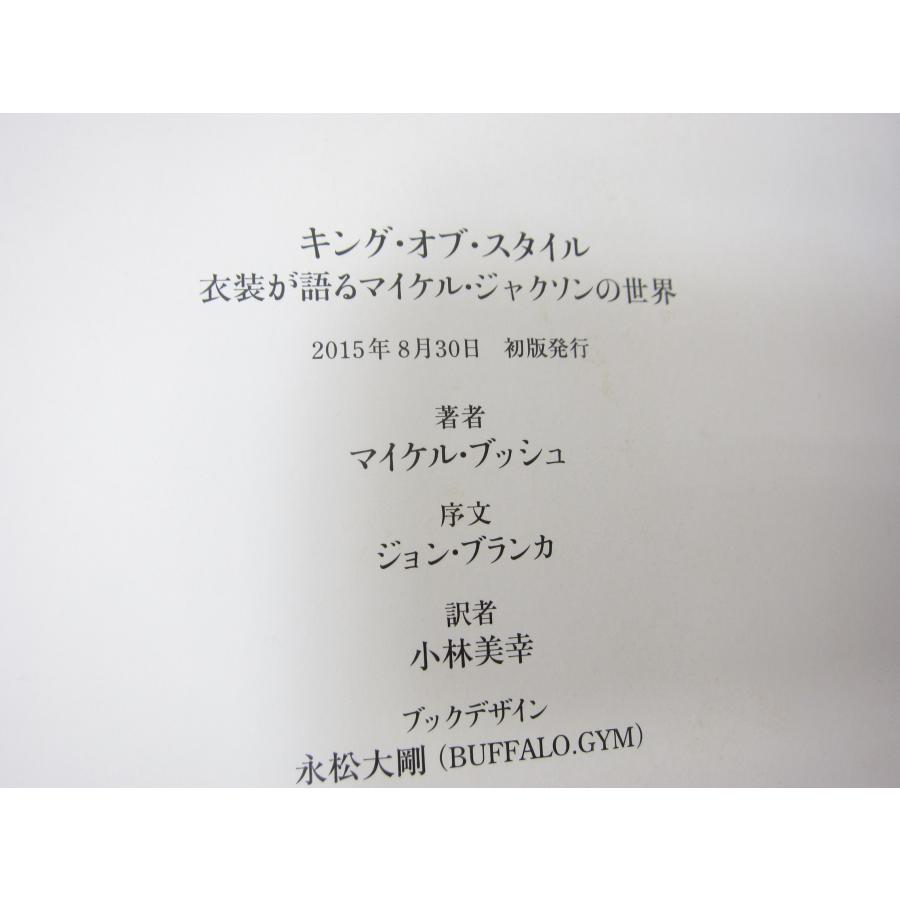 キング・オブ・スタイル
衣装が語るマイケル・ジャクソンの世界
2015年8月30日　初版発行
著者
マイケル・ブッシュ
序文
ジョン・ブランカ
訳者
小林美幸
ブックデザイン
永松大剛（BUFFALO.GYM）